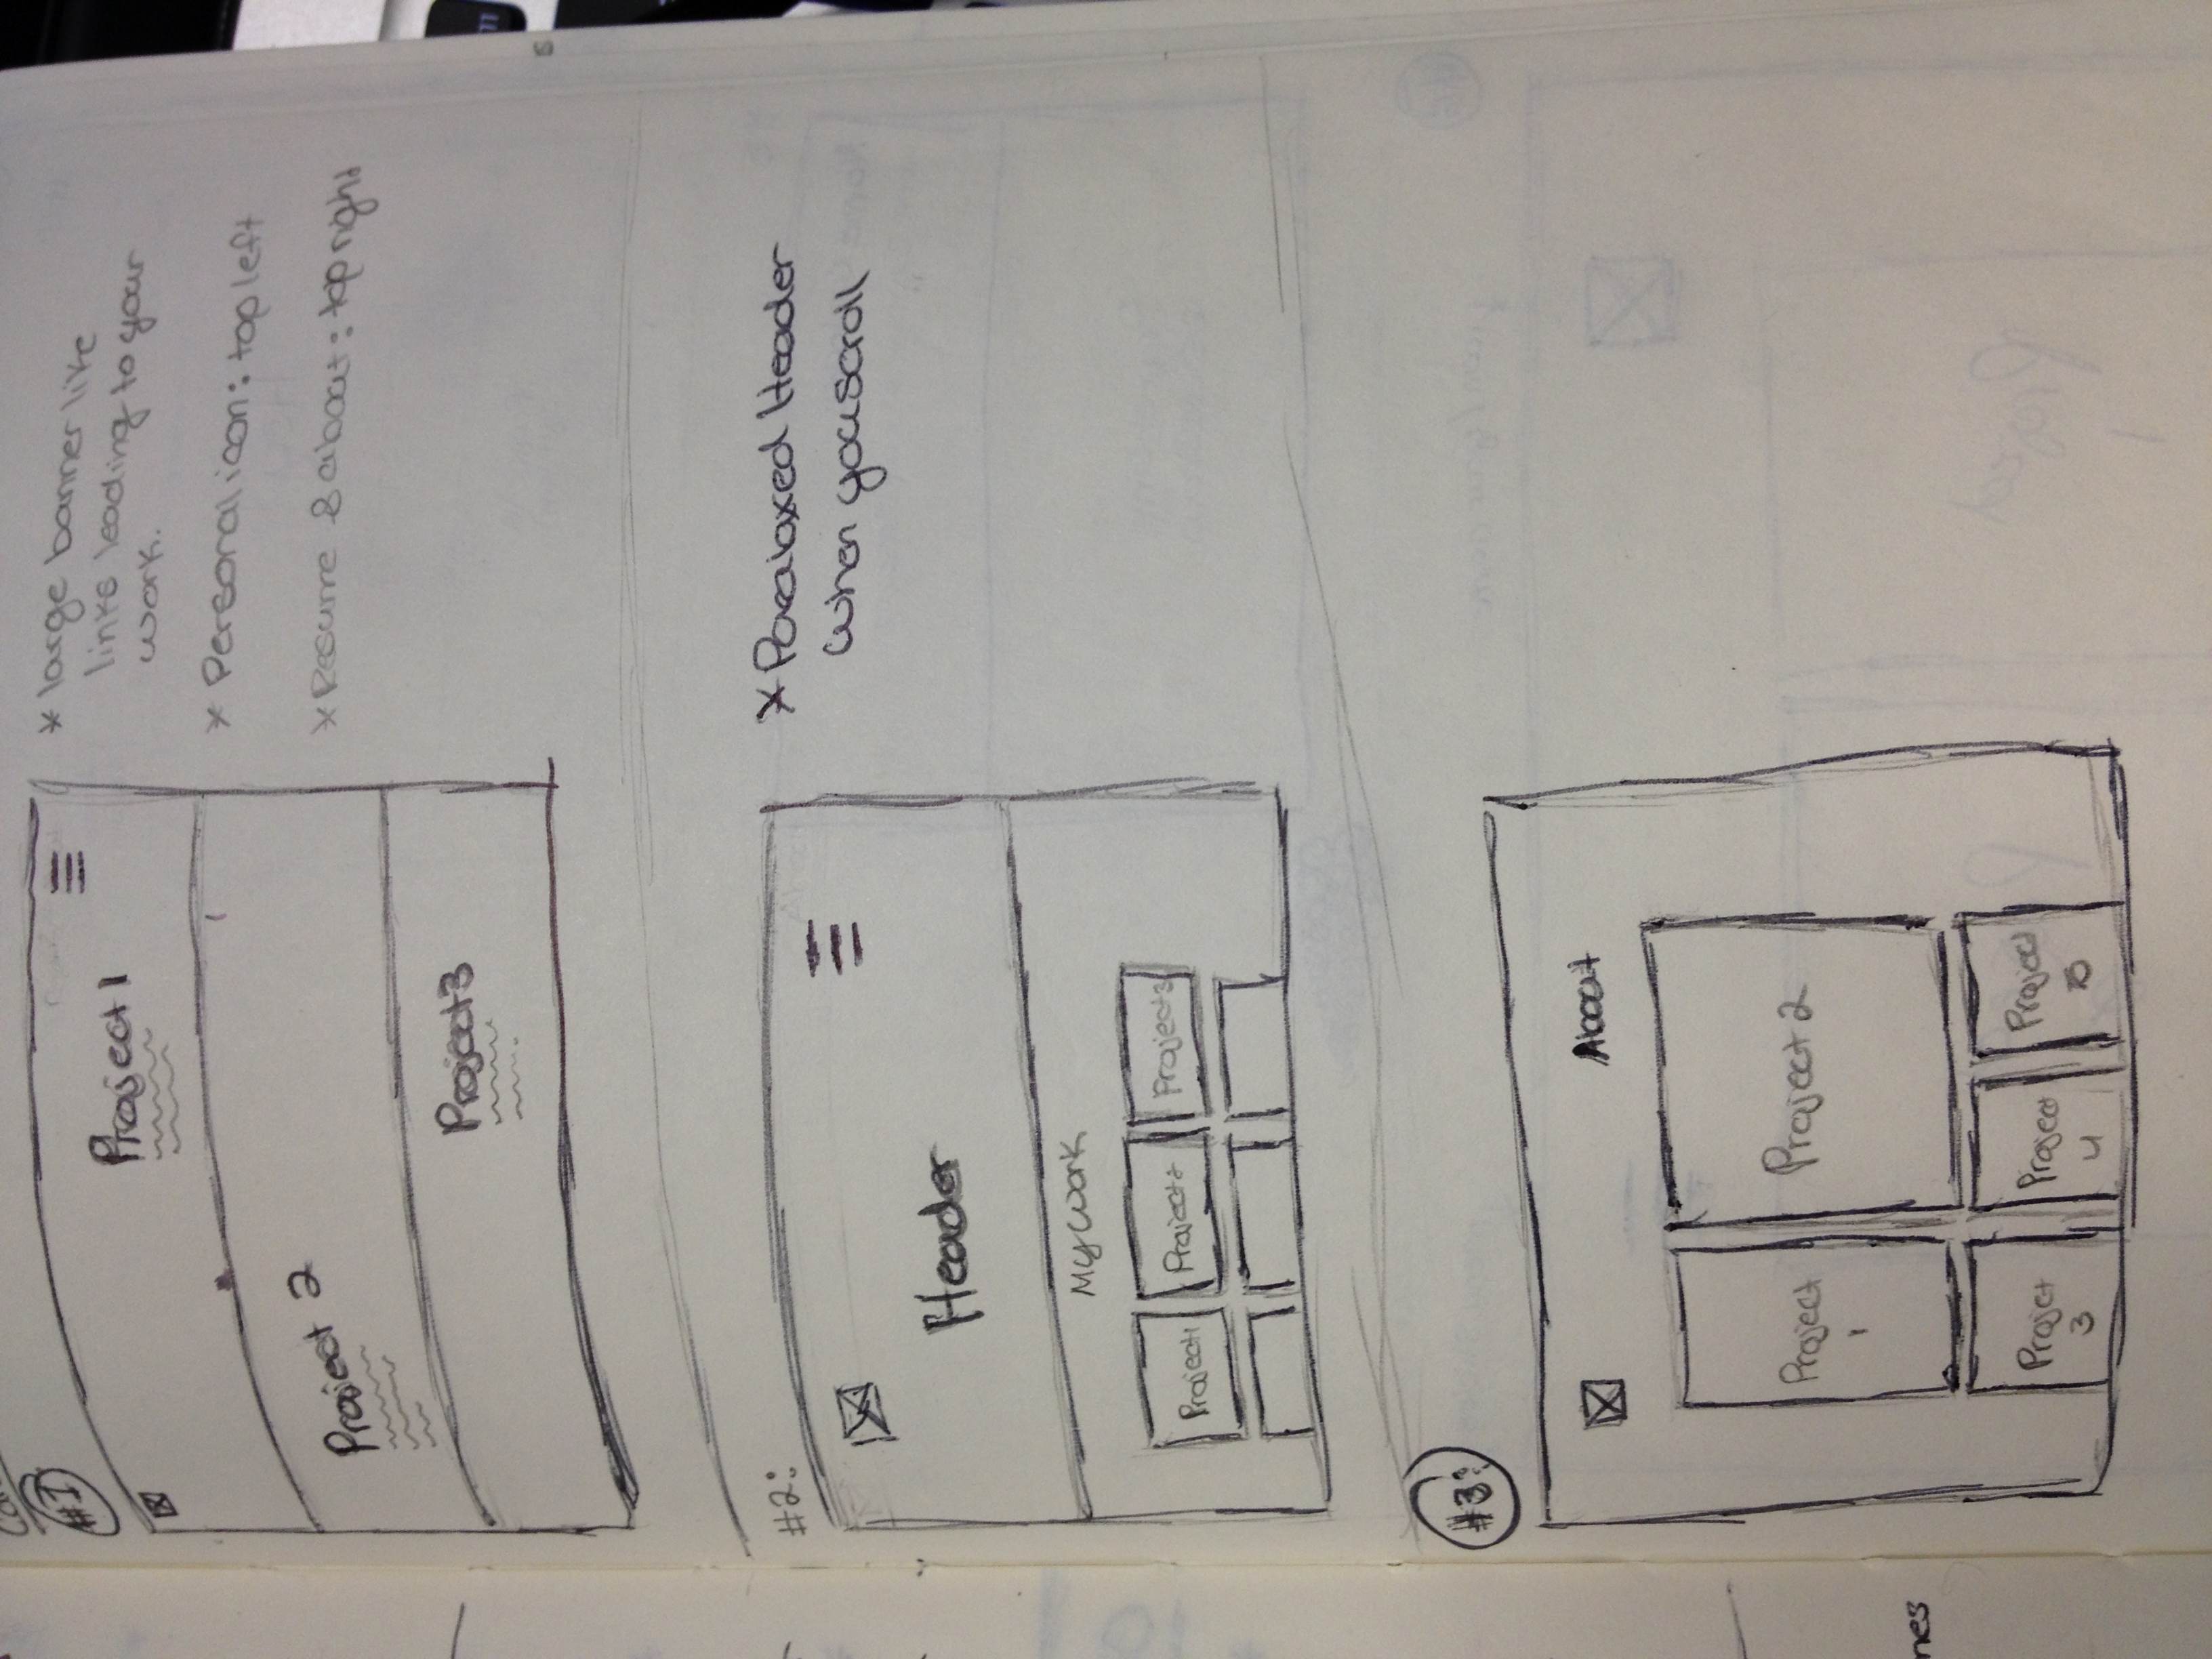 #1
Project 1
Project 2
Project 3
* large banner like
links leading to your
work.
* Personal icon: top left
* Resume & about: top right
#2:
Header
My work
Project 1
Project 2
Project 3
* Paralaxed Header
when you scroll
#3:
About
Project
1
Project 2
Project
3
Project
4
Project
5
nes